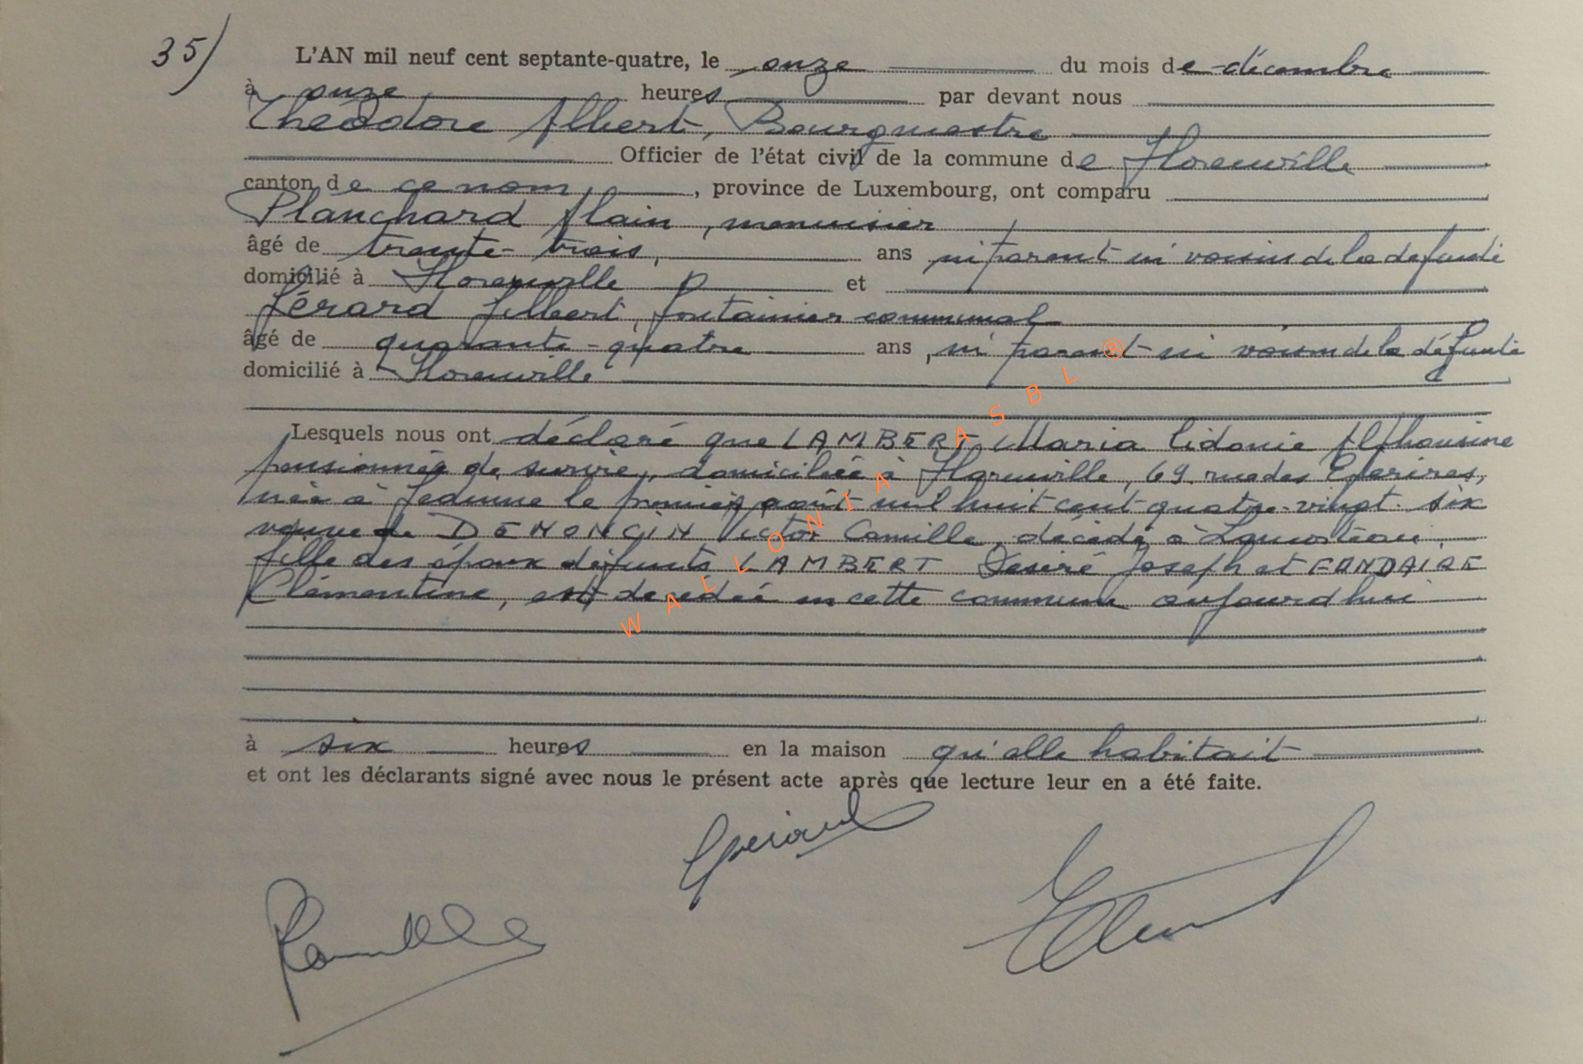 35)
L'AN mil neuf cent septante-quatre, le onze du mois de décembre
à onze heures par devant nous
Théodore Albert, Bourgmestre
Officier de l'état civil de la commune de Florenville
canton de ce nom, province de Luxembourg, ont comparu
Planchard Alain, menuisier
âgé de trente-trois, ans ni parent ni voisin de la défunte
domicilié à Florenville et
Gérard Gilbert, fontainier communal
âgé de quarante-quatre ans, ni parent ni voisin de la défunte
domicilié à Florenville
Lesquels nous ont déclaré que LAMBERT Maria Lidonie Alphonsine
pensionnée de survie, domiciliée à Florenville, 69, rue des Epérires,
née à Jedinne le premier août mil huit cent quatre-vingt-six
veuve de DEMONCIN Victor Camille, décédé à
fille des époux défunts LAMBERT Désiré Joseph et FONDAIRE
Clémentine, est décédée en cette commune aujourd'hui
à six heures en la maison qu'elle habitait
et ont les déclarants signé avec nous le présent acte après que lecture leur en a été faite.
Gérard
WALLONIA ASBL ®